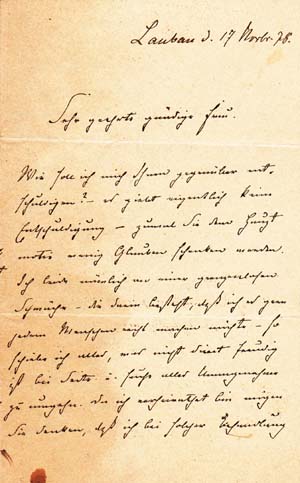 Lauban d. 17 Novbr. 78.
Sehr geehrte gnädige Frau.
Wie soll ich mich Ihnen gegenüber ent-
schuldigen? – es giebt eigentlich keine
Entschuldigung – zumal Sie dem Haupt
motiv wenig Glauben schenken werden.
Ich leide nämlich an einer grenzenlosen
Schwäche – die darin besteht, daß ich es gern
jedem Menschen recht machen möchte – so
schiebe ich alles, was nicht direct freudig
ist bei Seite u. suche alles Unangenehme
zu umgehen. Da ich verheirathet bin mögen
Sie denken, daß ich bei solcher Behandlung